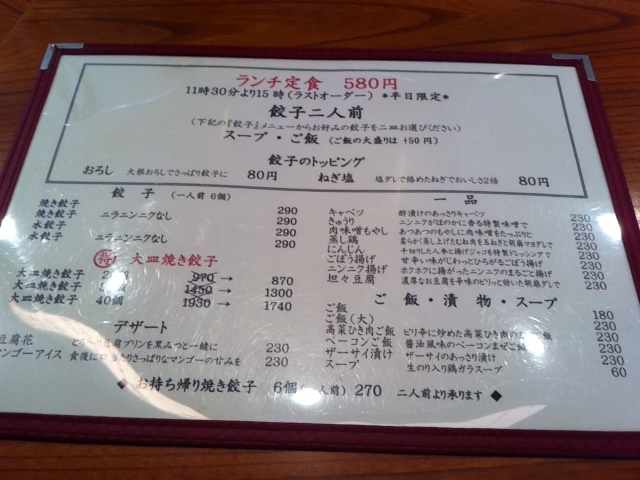 ランチ定食 580円
11時30分より15時(ラストオーダー) *平日限定*
餃子二人前
(下記の『餃子』メニューからお好みの餃子を二皿お選びください)
スープ・ご飯 (ご飯の大盛りは +50円)
餃子のトッピング
おろし 大根おろしでさっぱり餃子に 80円 ねぎ塩 塩ダレで絡めたねぎでおいしさ2倍 80円
餃子 (一人前 6個)
焼き餃子 290
焼き餃子 ニラニンニクなし 290
水餃子 290
水餃子 ニラニンニクなし 290
得 大皿焼き餃子
大皿焼き餃子 970 → 870
大皿焼き餃子 1450 → 1300
大皿焼き餃子 40個 1930 → 1740
デザート
豆腐花 豆腐プリンを黒みつと一緒に 230
マンゴーアイス 食後に さっぱりなマンゴーの甘みを 230
一品
キャベツ 酢漬けのあっさりキャベツ 230
きゅうり ニンニクがほのかに香る特製味噌で 230
肉味噌もやし あつあつのもやしに肉味噌をたっぷりと 230
蒸し鶏 柔らかく蒸し上げたむね肉を玉ねぎと胡麻マヨダレで 230
にんじん 千切りした人参と揚げジャコを特製ドレッシングで 230
ごぼう揚げ 甘辛い味がじわっとひろがるごぼう揚げ 230
ニンニク揚げ ホクホクに揚がったニンニクのまるごと揚げ 230
坦々豆腐 濃厚なお豆腐を辛味のピリッと効いた胡麻ダレで 230
ご飯・漬物・スープ
ご飯 180
ご飯(大) 230
高菜ひき肉ご飯 ピリ辛に炒めた高菜ひき肉の 飯 230
ベーコンご飯 醤油風味のベーコンまぜご飯 230
ザーサイ漬け ザーサイのあっさり漬け 230
スープ 生のり入り鶏ガラスープ 60
◆ お持ち帰り焼き餃子 6個(一人前) 270 二人前より承ります ◆